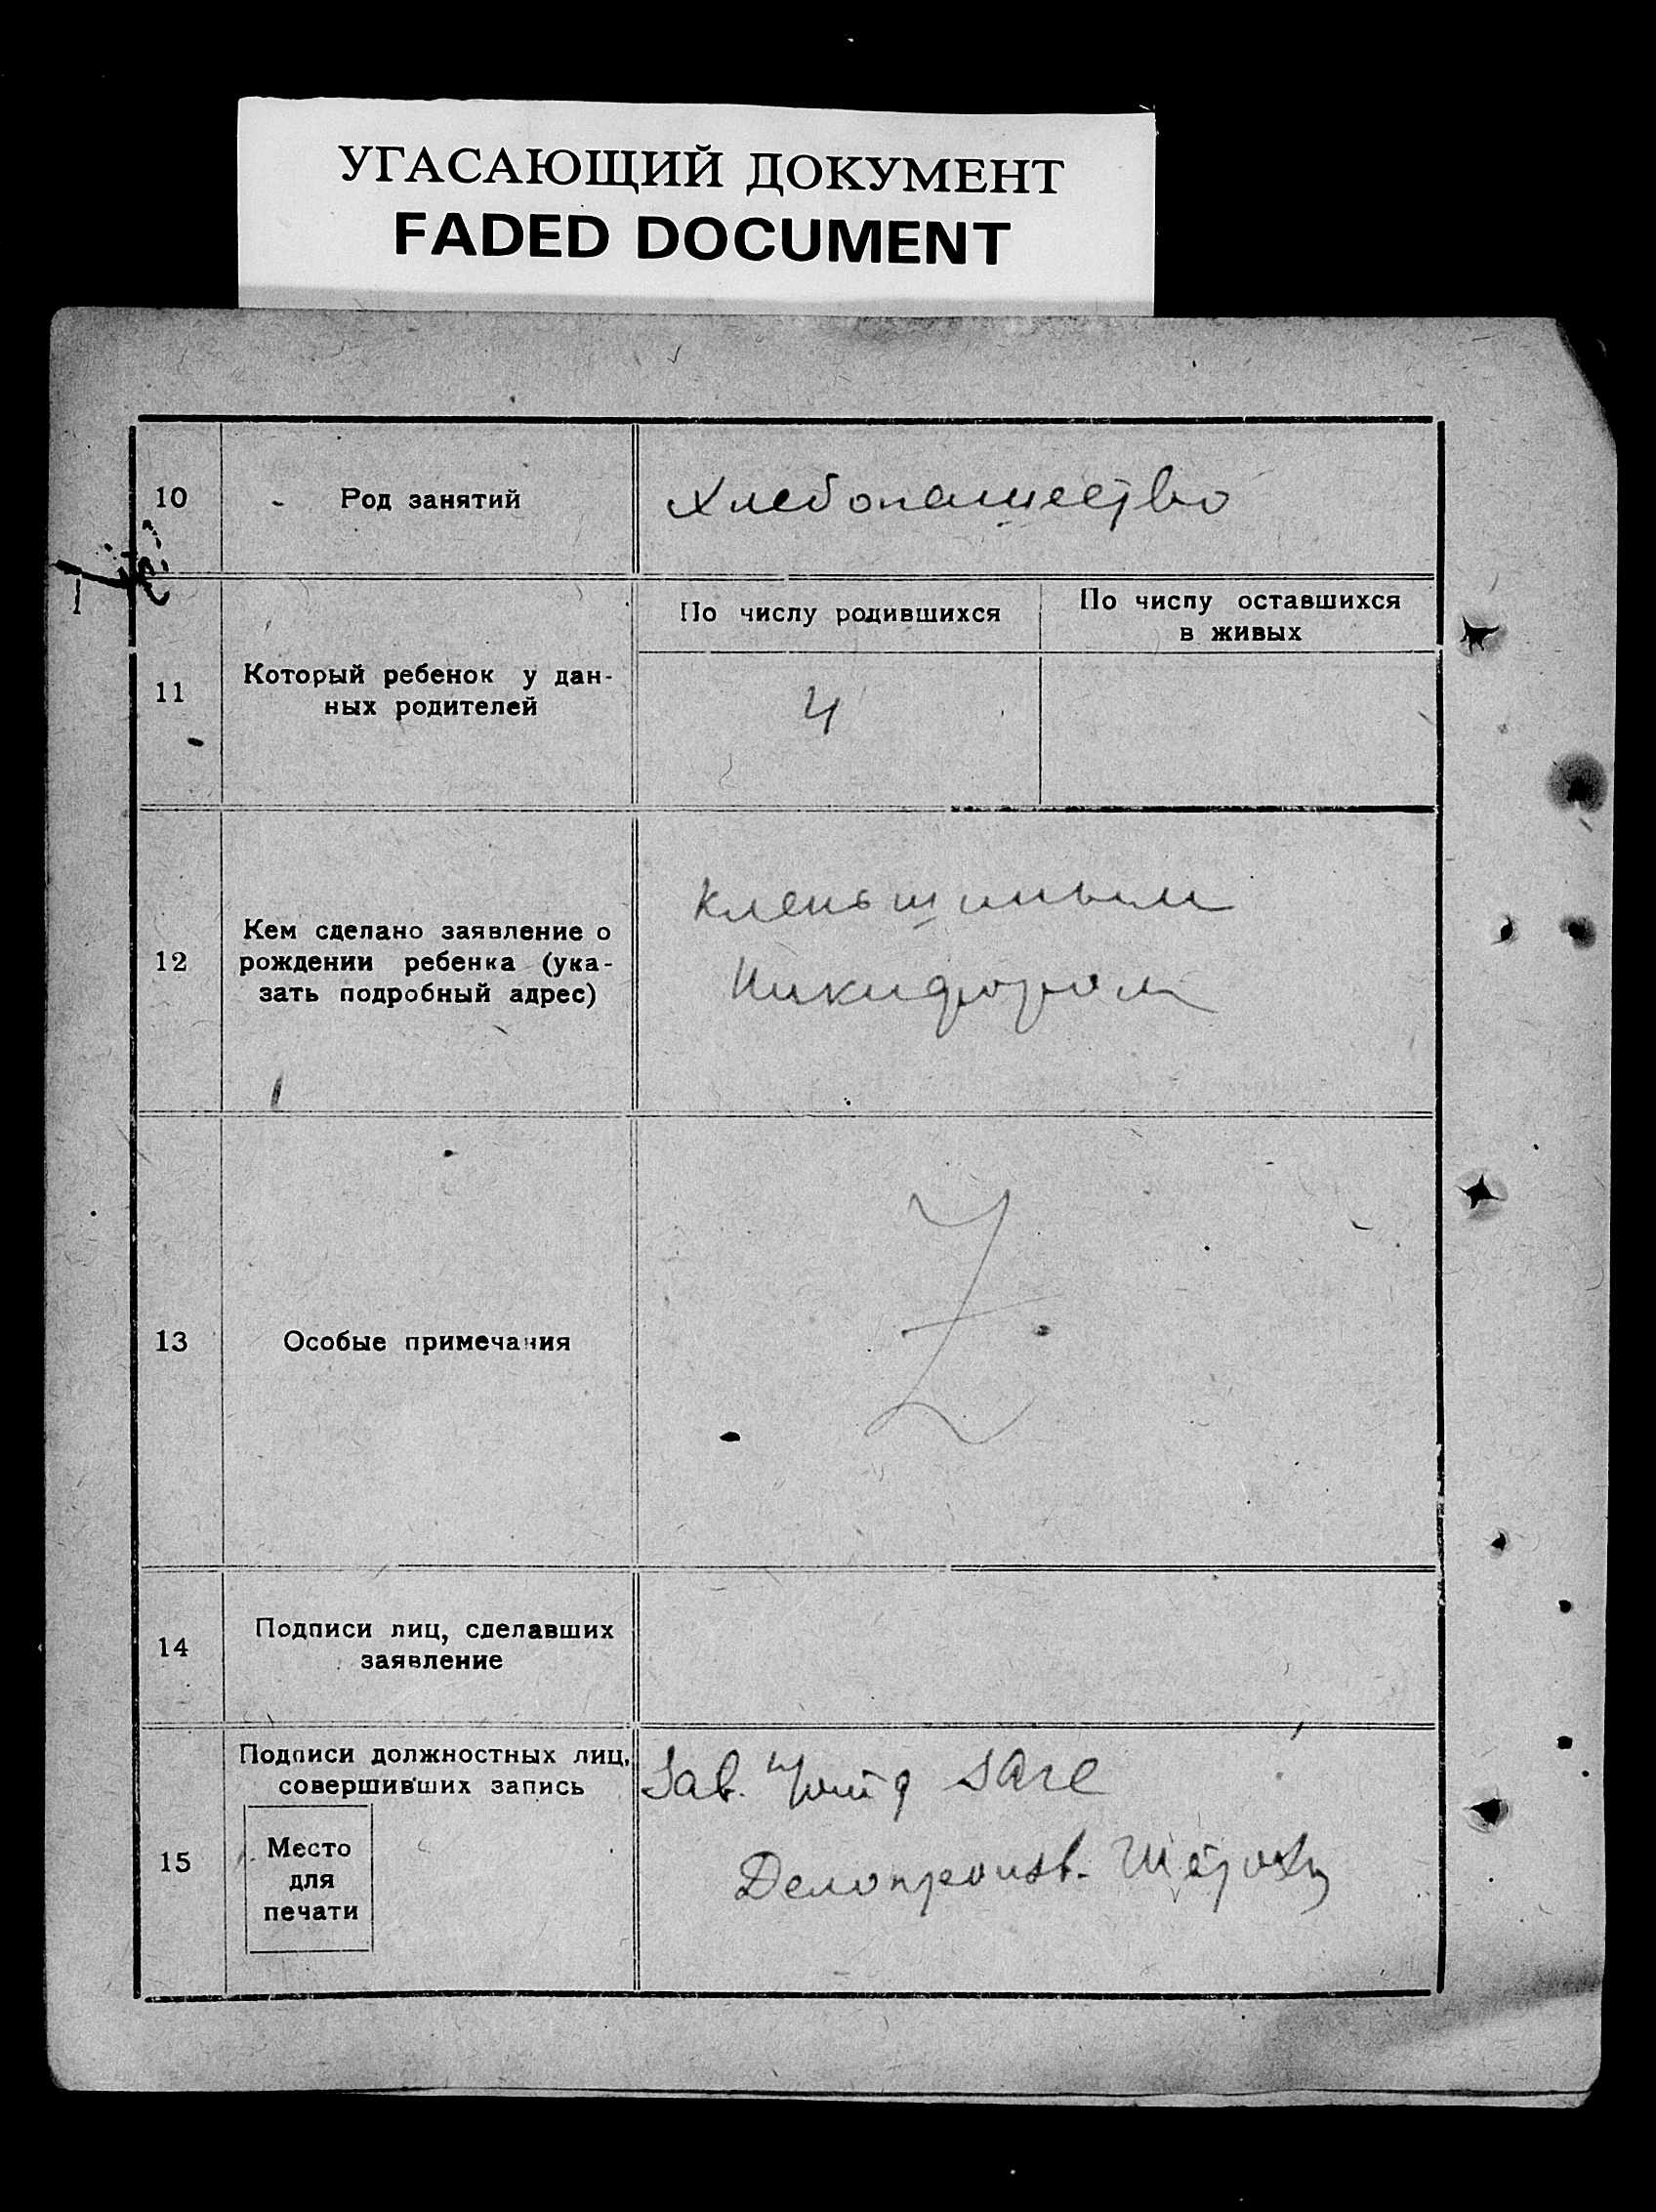 УГАСАЮЩИЙ ДОКУМЕНТ
FADED DOCUMENT
10
Род занятий
Хлебопашество
11
Который ребенок у дан-
ных родителей
По числу родившихся
4
По числу оставшихся
в живых
12
Кем сделано заявление о
рождении ребенка (ука-
зать подробный адрес)
Кленьшиным
Никифором
13
Особые примечания
Z
14
Подписи лиц, сделавших
заявление
15
Подписи должностных лиц,
совершивших запись
Место
для
печати
Зав.
Делопроизв.